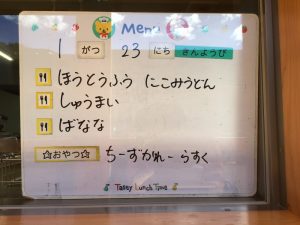 Menu
1 がつ 23 にち きんようび
ほうとうふう にこみうどん
しゅうまい
ばなな
☆おやつ☆ ちーずかれーらすく
Tasty Lunch Time